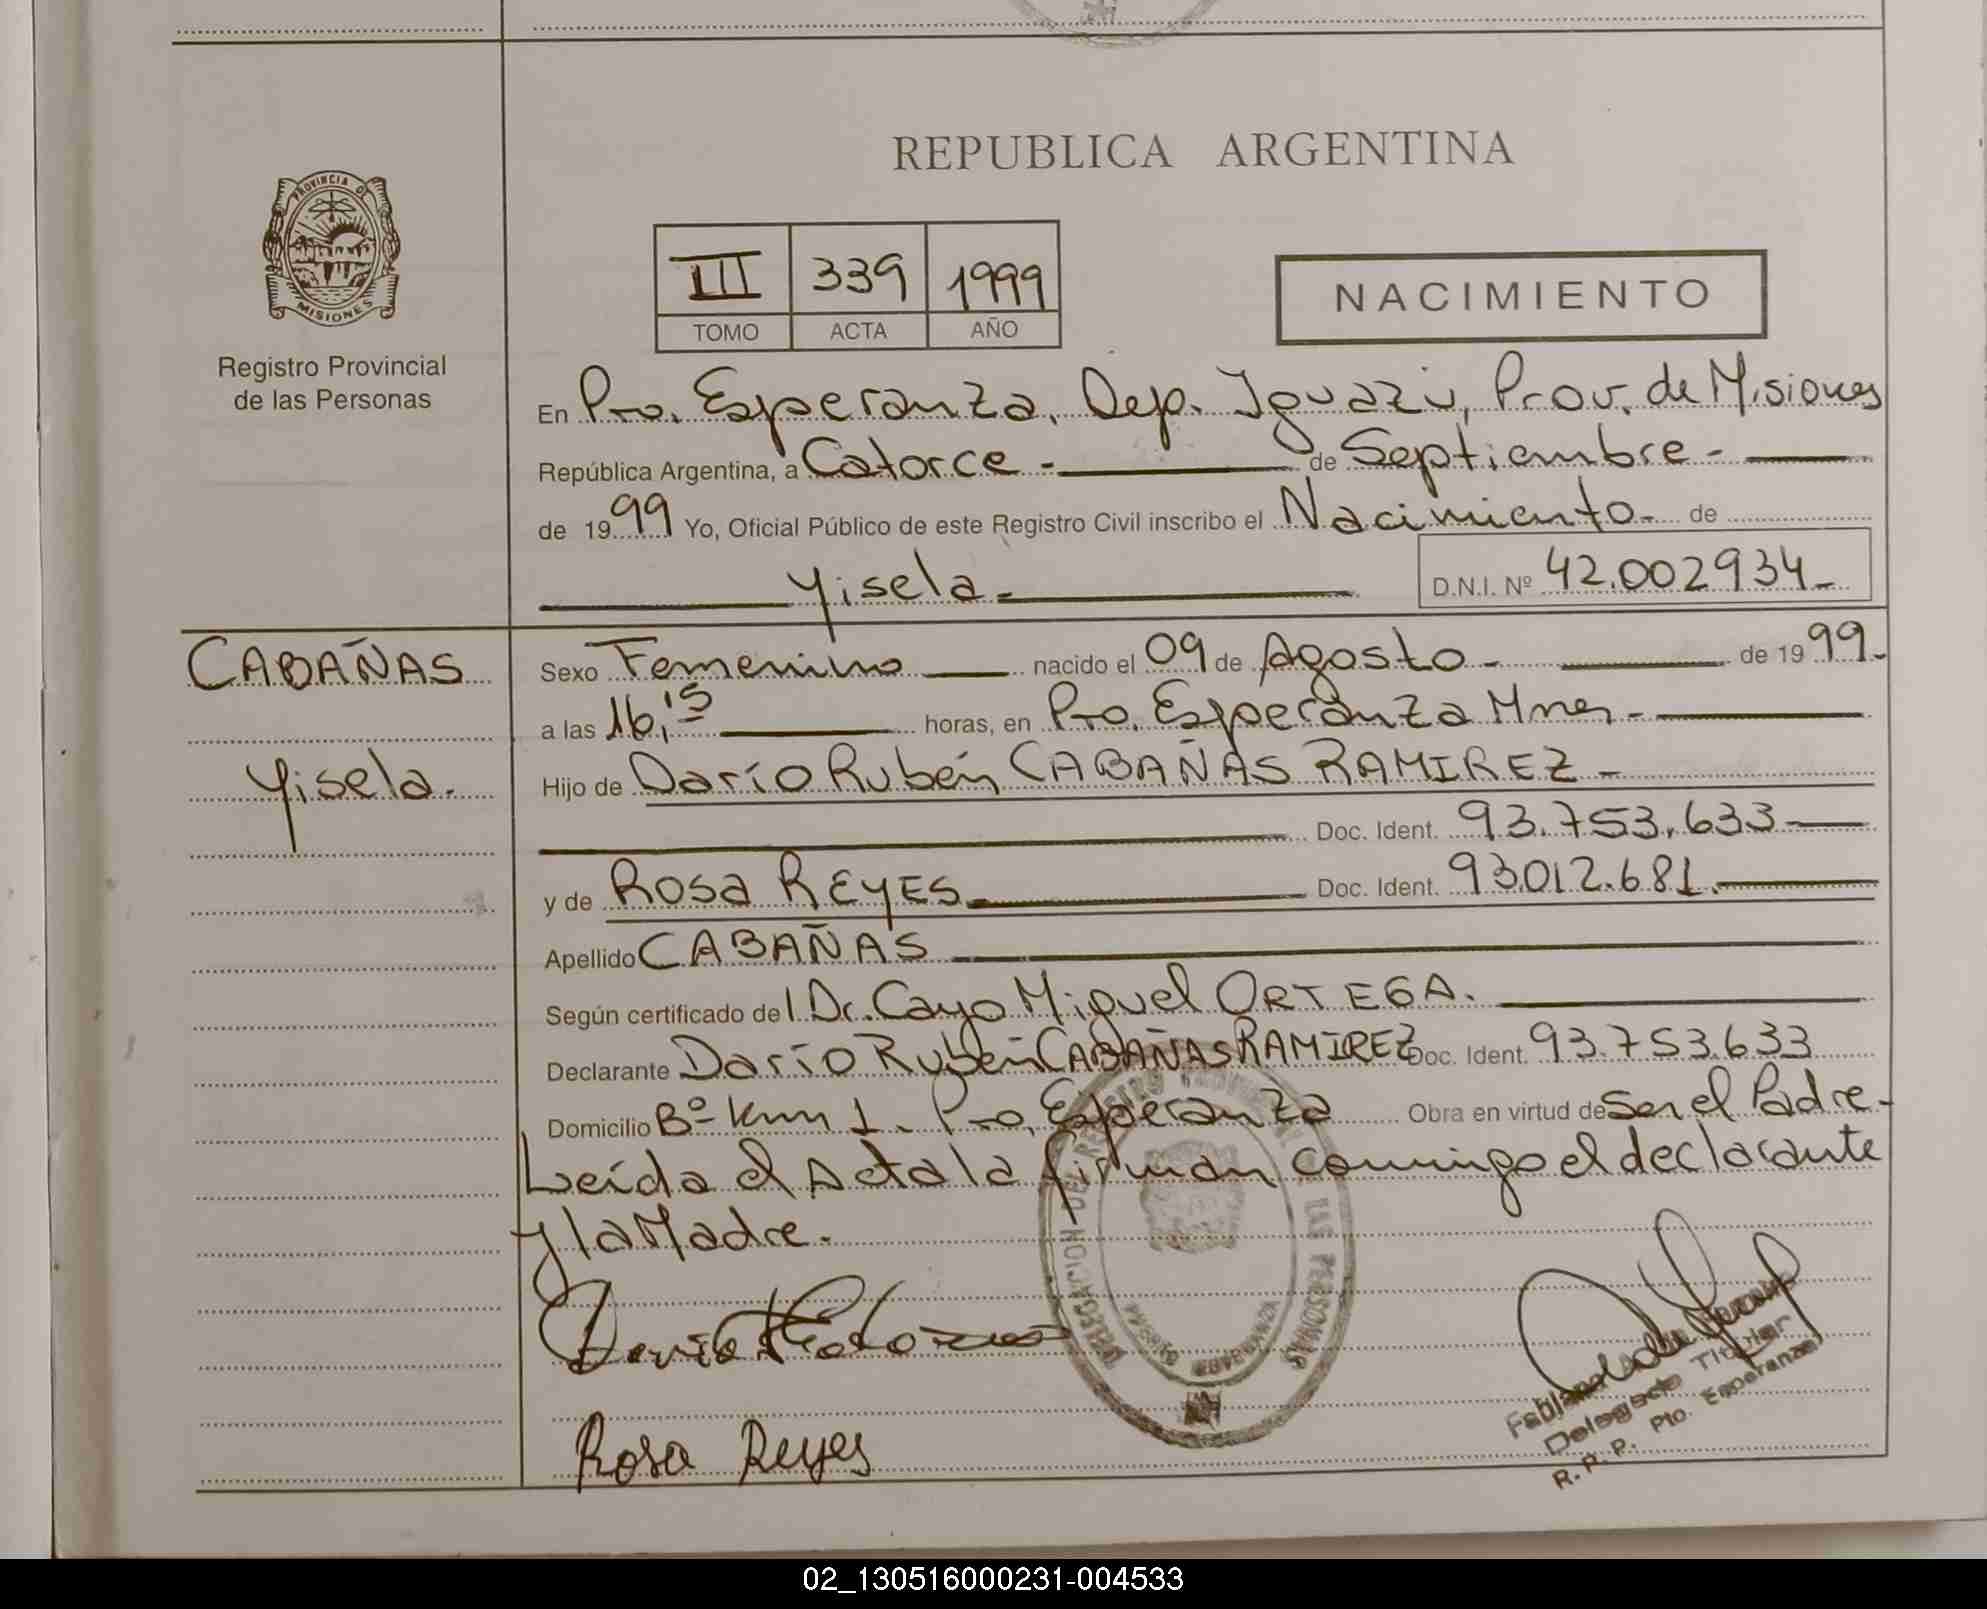 PROVINCIA DE
MISIONES
Registro Provincial
de las Personas
REPUBLICA ARGENTINA
III 339 1999
TOMO ACTA AÑO
NACIMIENTO
En Pto. Esperanza, Dep. Iguazú, Prov. de Misiones
República Argentina, a Catorce - de Septiembre -
de 1999 Yo, Oficial Público de este Registro Civil inscribo el Nacimiento - de
Yisela - D.N.I. Nº 42.002934 -
CABAÑAS
Yisela.
Sexo Femenino nacido el 09 de Agosto - de 1999 -
a las 16,15 horas, en Pto. Esperanza Mnes -
Hijo de Darío Rubén CABAÑAS RAMIREZ -
Doc. Ident. 93.753.633
y de Rosa REYES - Doc. Ident. 93.012.681.
Apellido CABAÑAS
Según certificado del Dr. Cayo Miguel ORTEGA.
Declarante Darío Rubén CABAÑAS RAMIREZ Doc. Ident. 93.753.633
Domicilio Bº Km 1 - Pto. Esperanza Obra en virtud de Ser el Padre -
Leída el Acta la firman conmigo el declarante
y la Madre.
DELEGACION DEL REGISTRO PROVINCIAL DE LAS PERSONAS
Rosa Reyes
Delegado Titular
R. P. P. Pto. Esperanza
02_130516000231-004533